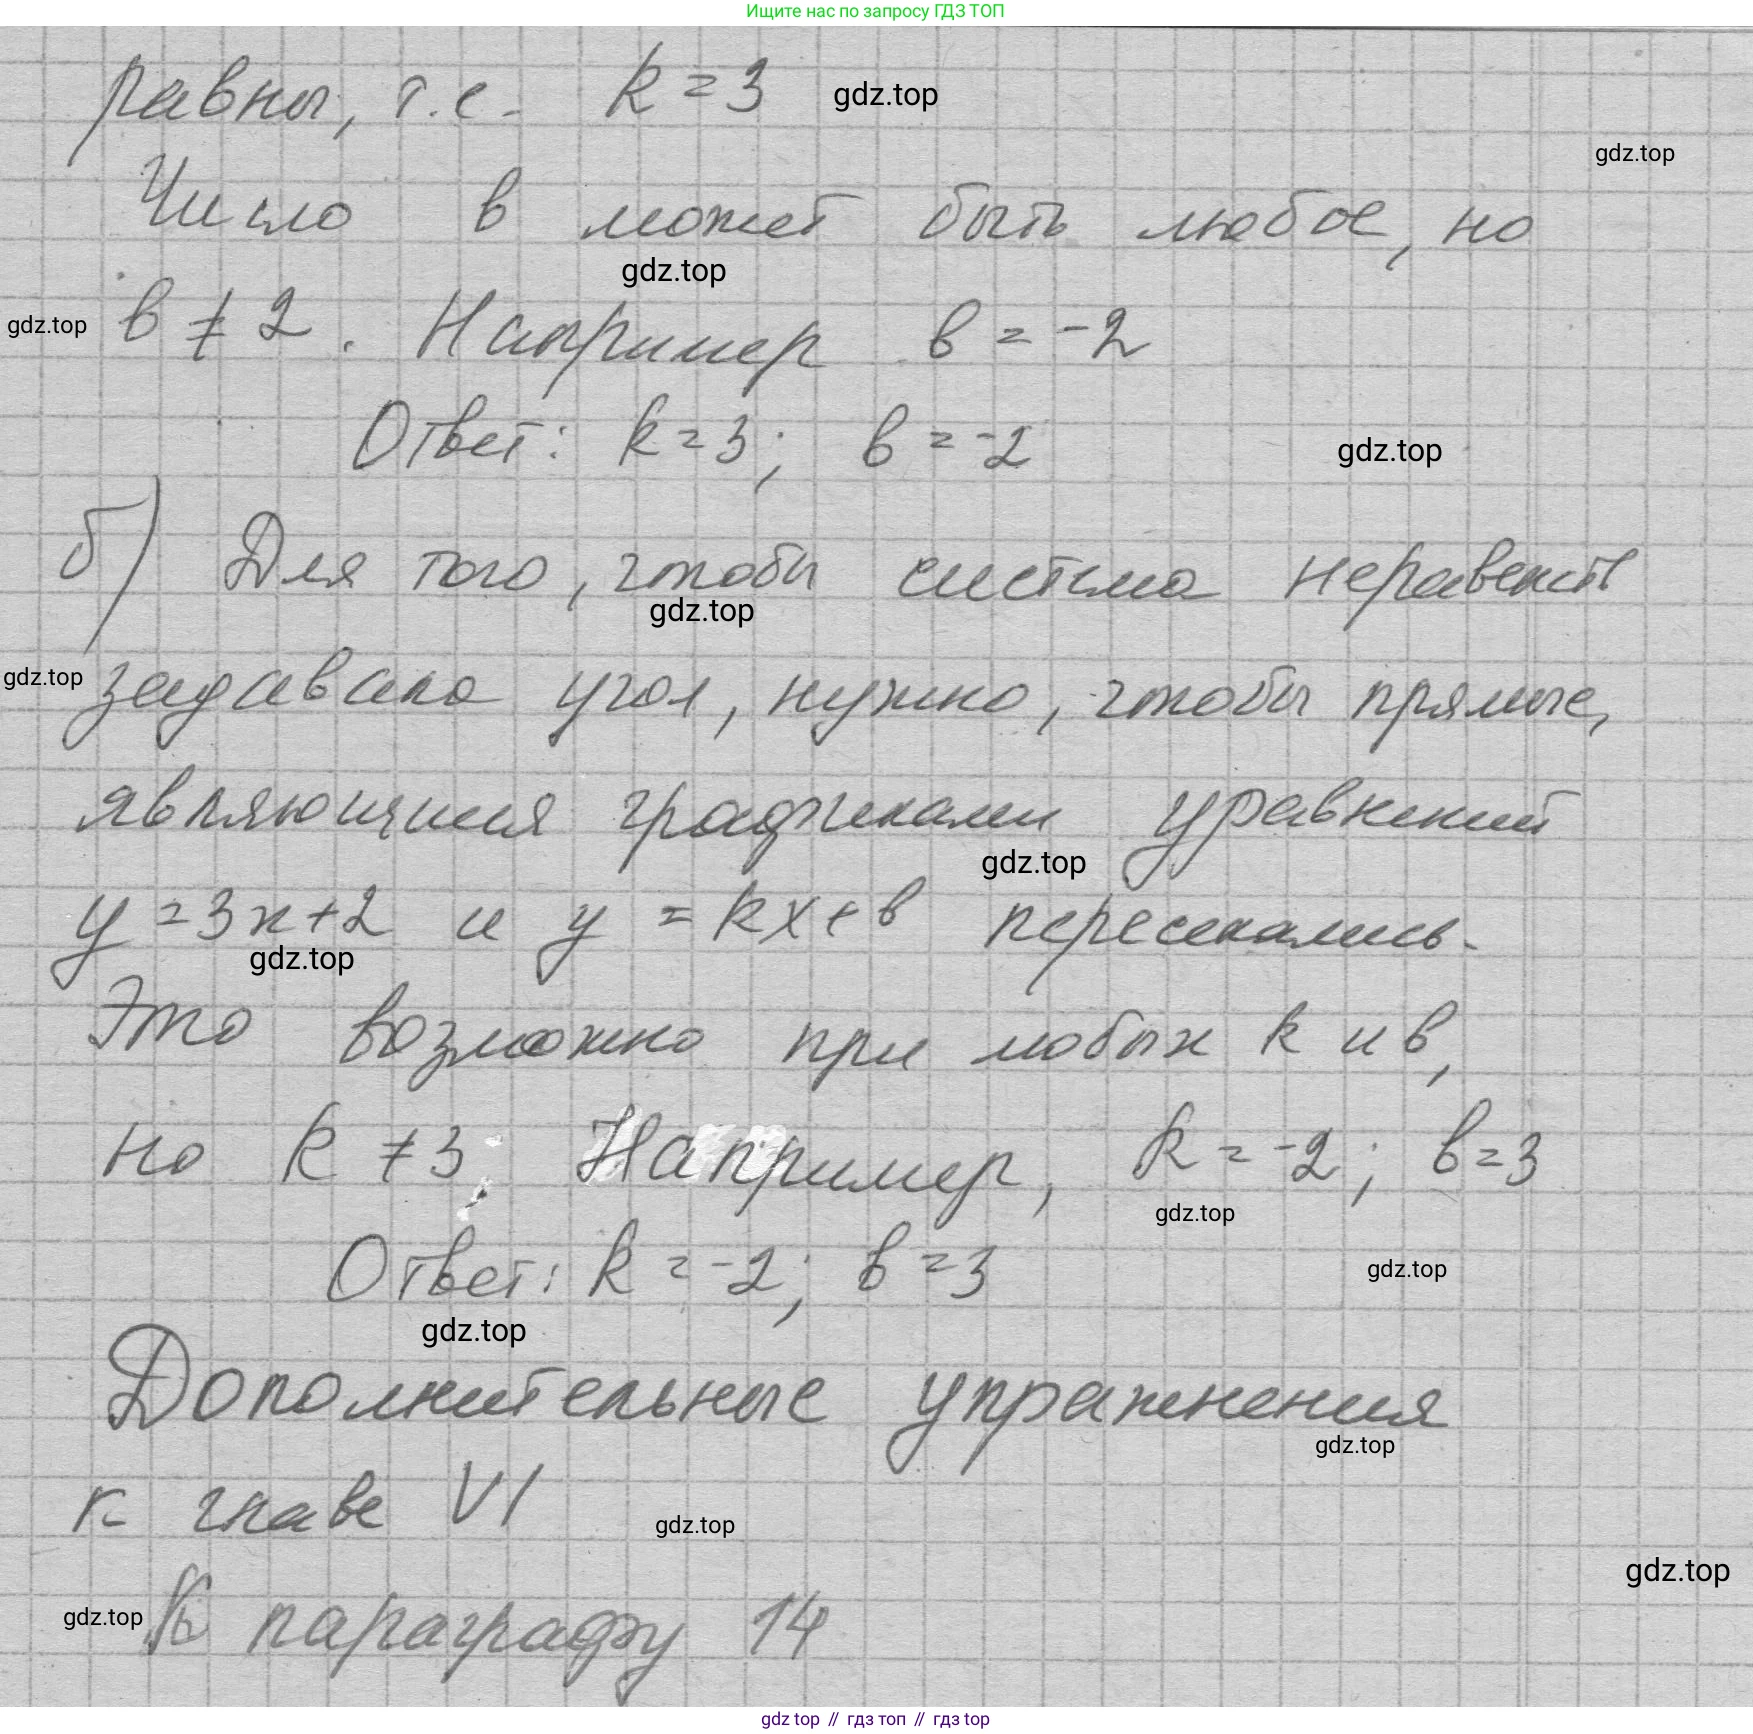 Ищите нас по запросу ГДЗ ТОП
равны, т.е. k = 3 gdz.top
gdz.top
Число в может быть любое, но
gdz.top
gdz.top в ≠ 2. Например в = -2
Ответ: k = 3; в = -2 gdz.top
б) Для того, чтобы система неравенств
gdz.top
gdz.top задавала угол, нужно, чтобы прямые,
являющиеся графиками уравнений
gdz.top
y = 3x + 2 и y = kx + в пересекались.
gdz.top
Это возможно при любых k и в,
но k ≠ 3; Например, k = -2; в = 3
gdz.top
Ответ: k = -2; в = 3 gdz.top
gdz.top
Дополнительные упражнения
gdz.top
к главе VI
gdz.top
gdz.top
gdz.top К параграфу 14
gdz top // гдз топ // гдз top